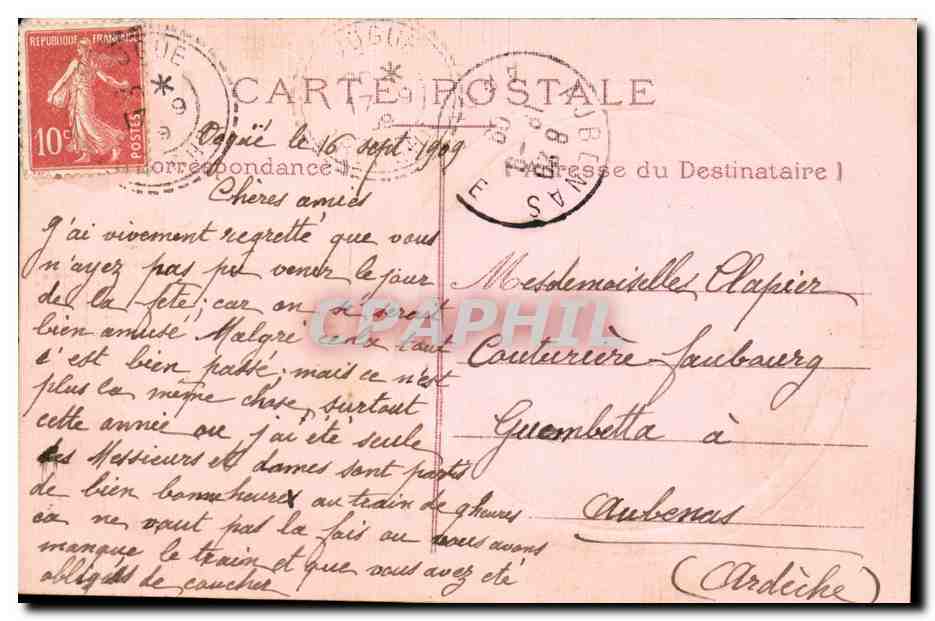 REPUBLIQUE FRANÇAISE
10c
POSTES
CARTE POSTALE
VOGUÉ
AUBENAS
Vogüé le 16 sept 1909
Correspondance
Adresse du Destinataire
Chères amies
J'ai vivement regretté que vous
n'ayez pas pu venir le jour
de la fête; car on s'serait
bien amusé. Malgré cela tout
s'est bien passé; mais ce n'est
plus la même chose, surtout
cette année ou j'ai été seule
Les Messieurs et dames sont partis
de bien bonne heure au train de 9 heures
ca ne vaut pas la fois ou vous avons
manqué le train et que vous avez été
obligés de coucher
Mesdemoiselles Clapier
Couturière faubourg
Guembetta à
Aubenas
(Ardèche)
CPAPHIL